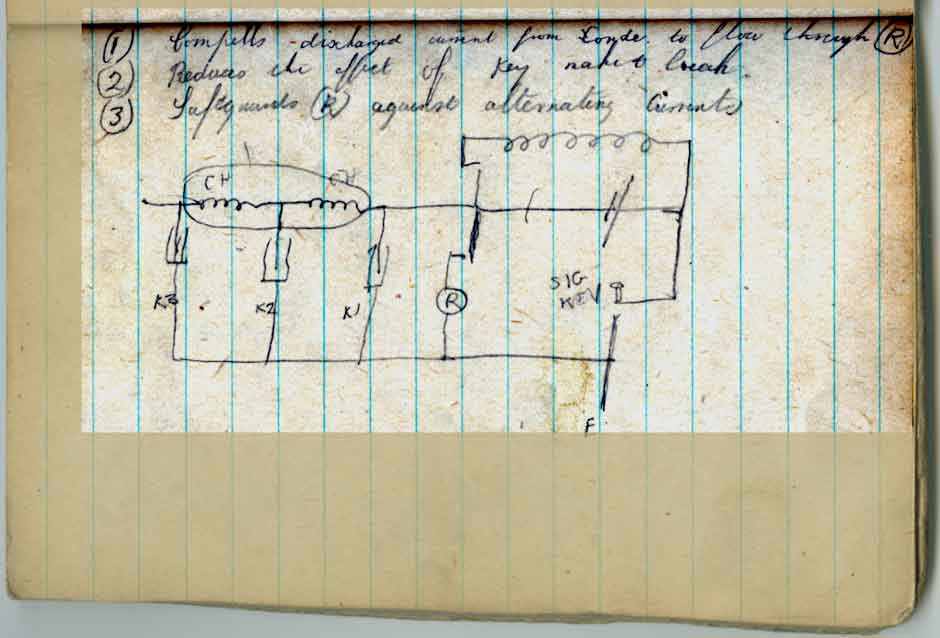 (1) Compells discharged current from to flow through (R)
(2) Reduces the effect of key make & break.
(3) Safeguards (R) against alternating Currents
CH CH
SIG
KEY
R
K3 K2 K1
F